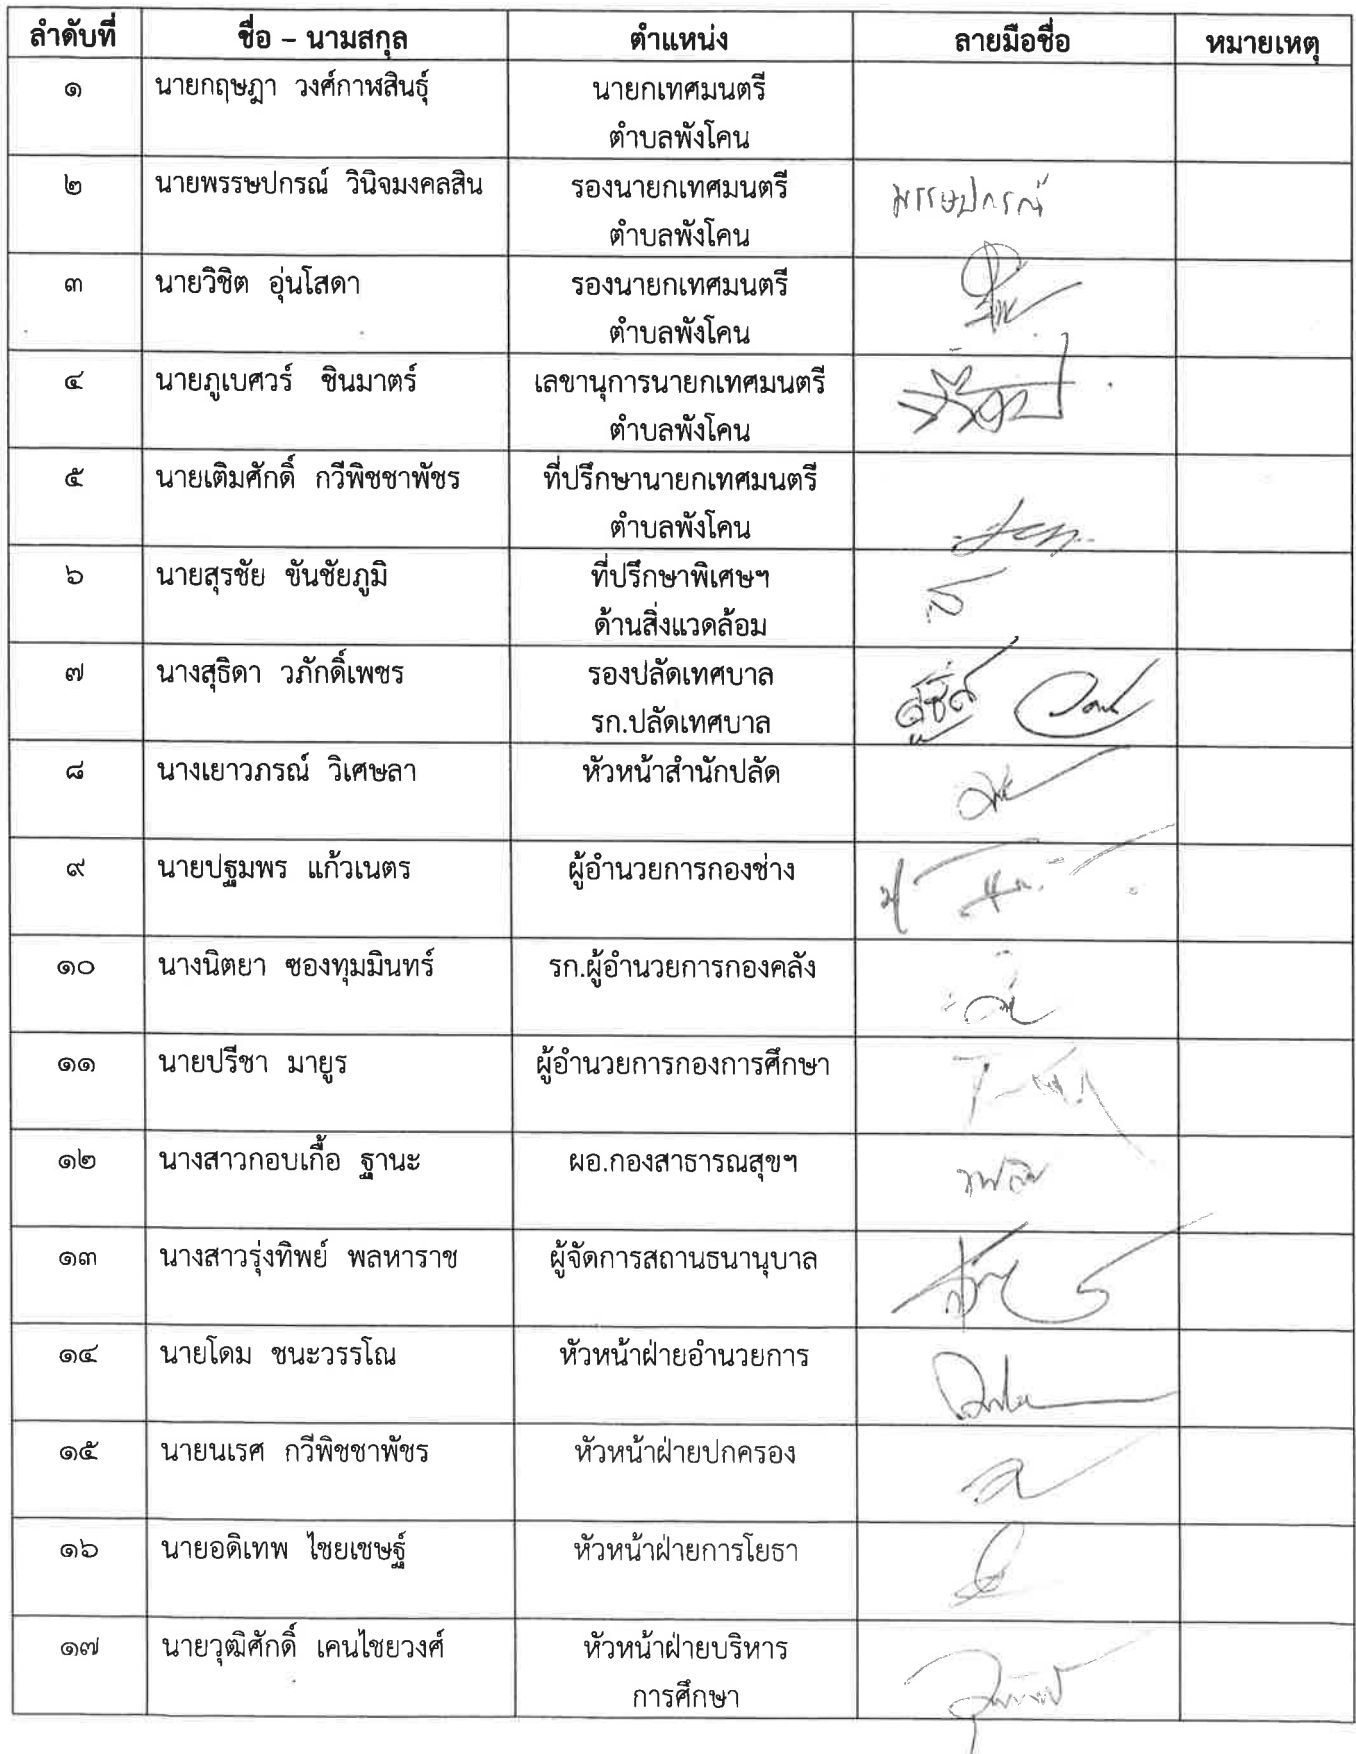 ลำดับที่ ชื่อ – นามสกุล ตำแหน่ง ลายมือชื่อ หมายเหตุ
๑ นายกฤษฎา วงศ์กาฬสินธุ์ นายกเทศมนตรี
ตำบลพังโคน
๒ นายพรรษปกรณ์ วินิจมงคลสิน รองนายกเทศมนตรี พรรษปกรณ์
ตำบลพังโคน
๓ นายวิชิต อุ่นโสดา รองนายกเทศมนตรี
ตำบลพังโคน
๔ นายภูเบศวร์ ชินมาตร์ เลขานุการนายกเทศมนตรี
ตำบลพังโคน
๕ นายเติมศักดิ์ กวีพิชชาพัชร ที่ปรึกษานายกเทศมนตรี
ตำบลพังโคน
๖ นายสุรชัย ขันชัยภูมิ ที่ปรึกษาพิเศษฯ
ด้านสิ่งแวดล้อม
๗ นางสุธิดา วภักดิ์เพชร รองปลัดเทศบาล
รก.ปลัดเทศบาล
๘ นางเยาวภรณ์ วิเศษลา หัวหน้าสำนักปลัด
๙ นายปฐมพร แก้วเนตร ผู้อำนวยการกองช่าง
๑๐ นางนิตยา ซองทุมมินทร์ รก.ผู้อำนวยการกองคลัง
๑๑ นายปรีชา มายูร ผู้อำนวยการกองการศึกษา
๑๒ นางสาวกอบเกื้อ ฐานะ ผอ.กองสาธารณสุขฯ
๑๓ นางสาวรุ่งทิพย์ พลหาราช ผู้จัดการสถานธนานุบาล
๑๔ นายโดม ชนะวรรโณ หัวหน้าฝ่ายอำนวยการ
๑๕ นายนเรศ กวีพิชชาพัชร หัวหน้าฝ่ายปกครอง
๑๖ นายอดิเทพ ไชยเชษฐ์ หัวหน้าฝ่ายการโยธา
๑๗ นายวุฒิศักดิ์ เคนไชยวงศ์ หัวหน้าฝ่ายบริหาร
การศึกษา